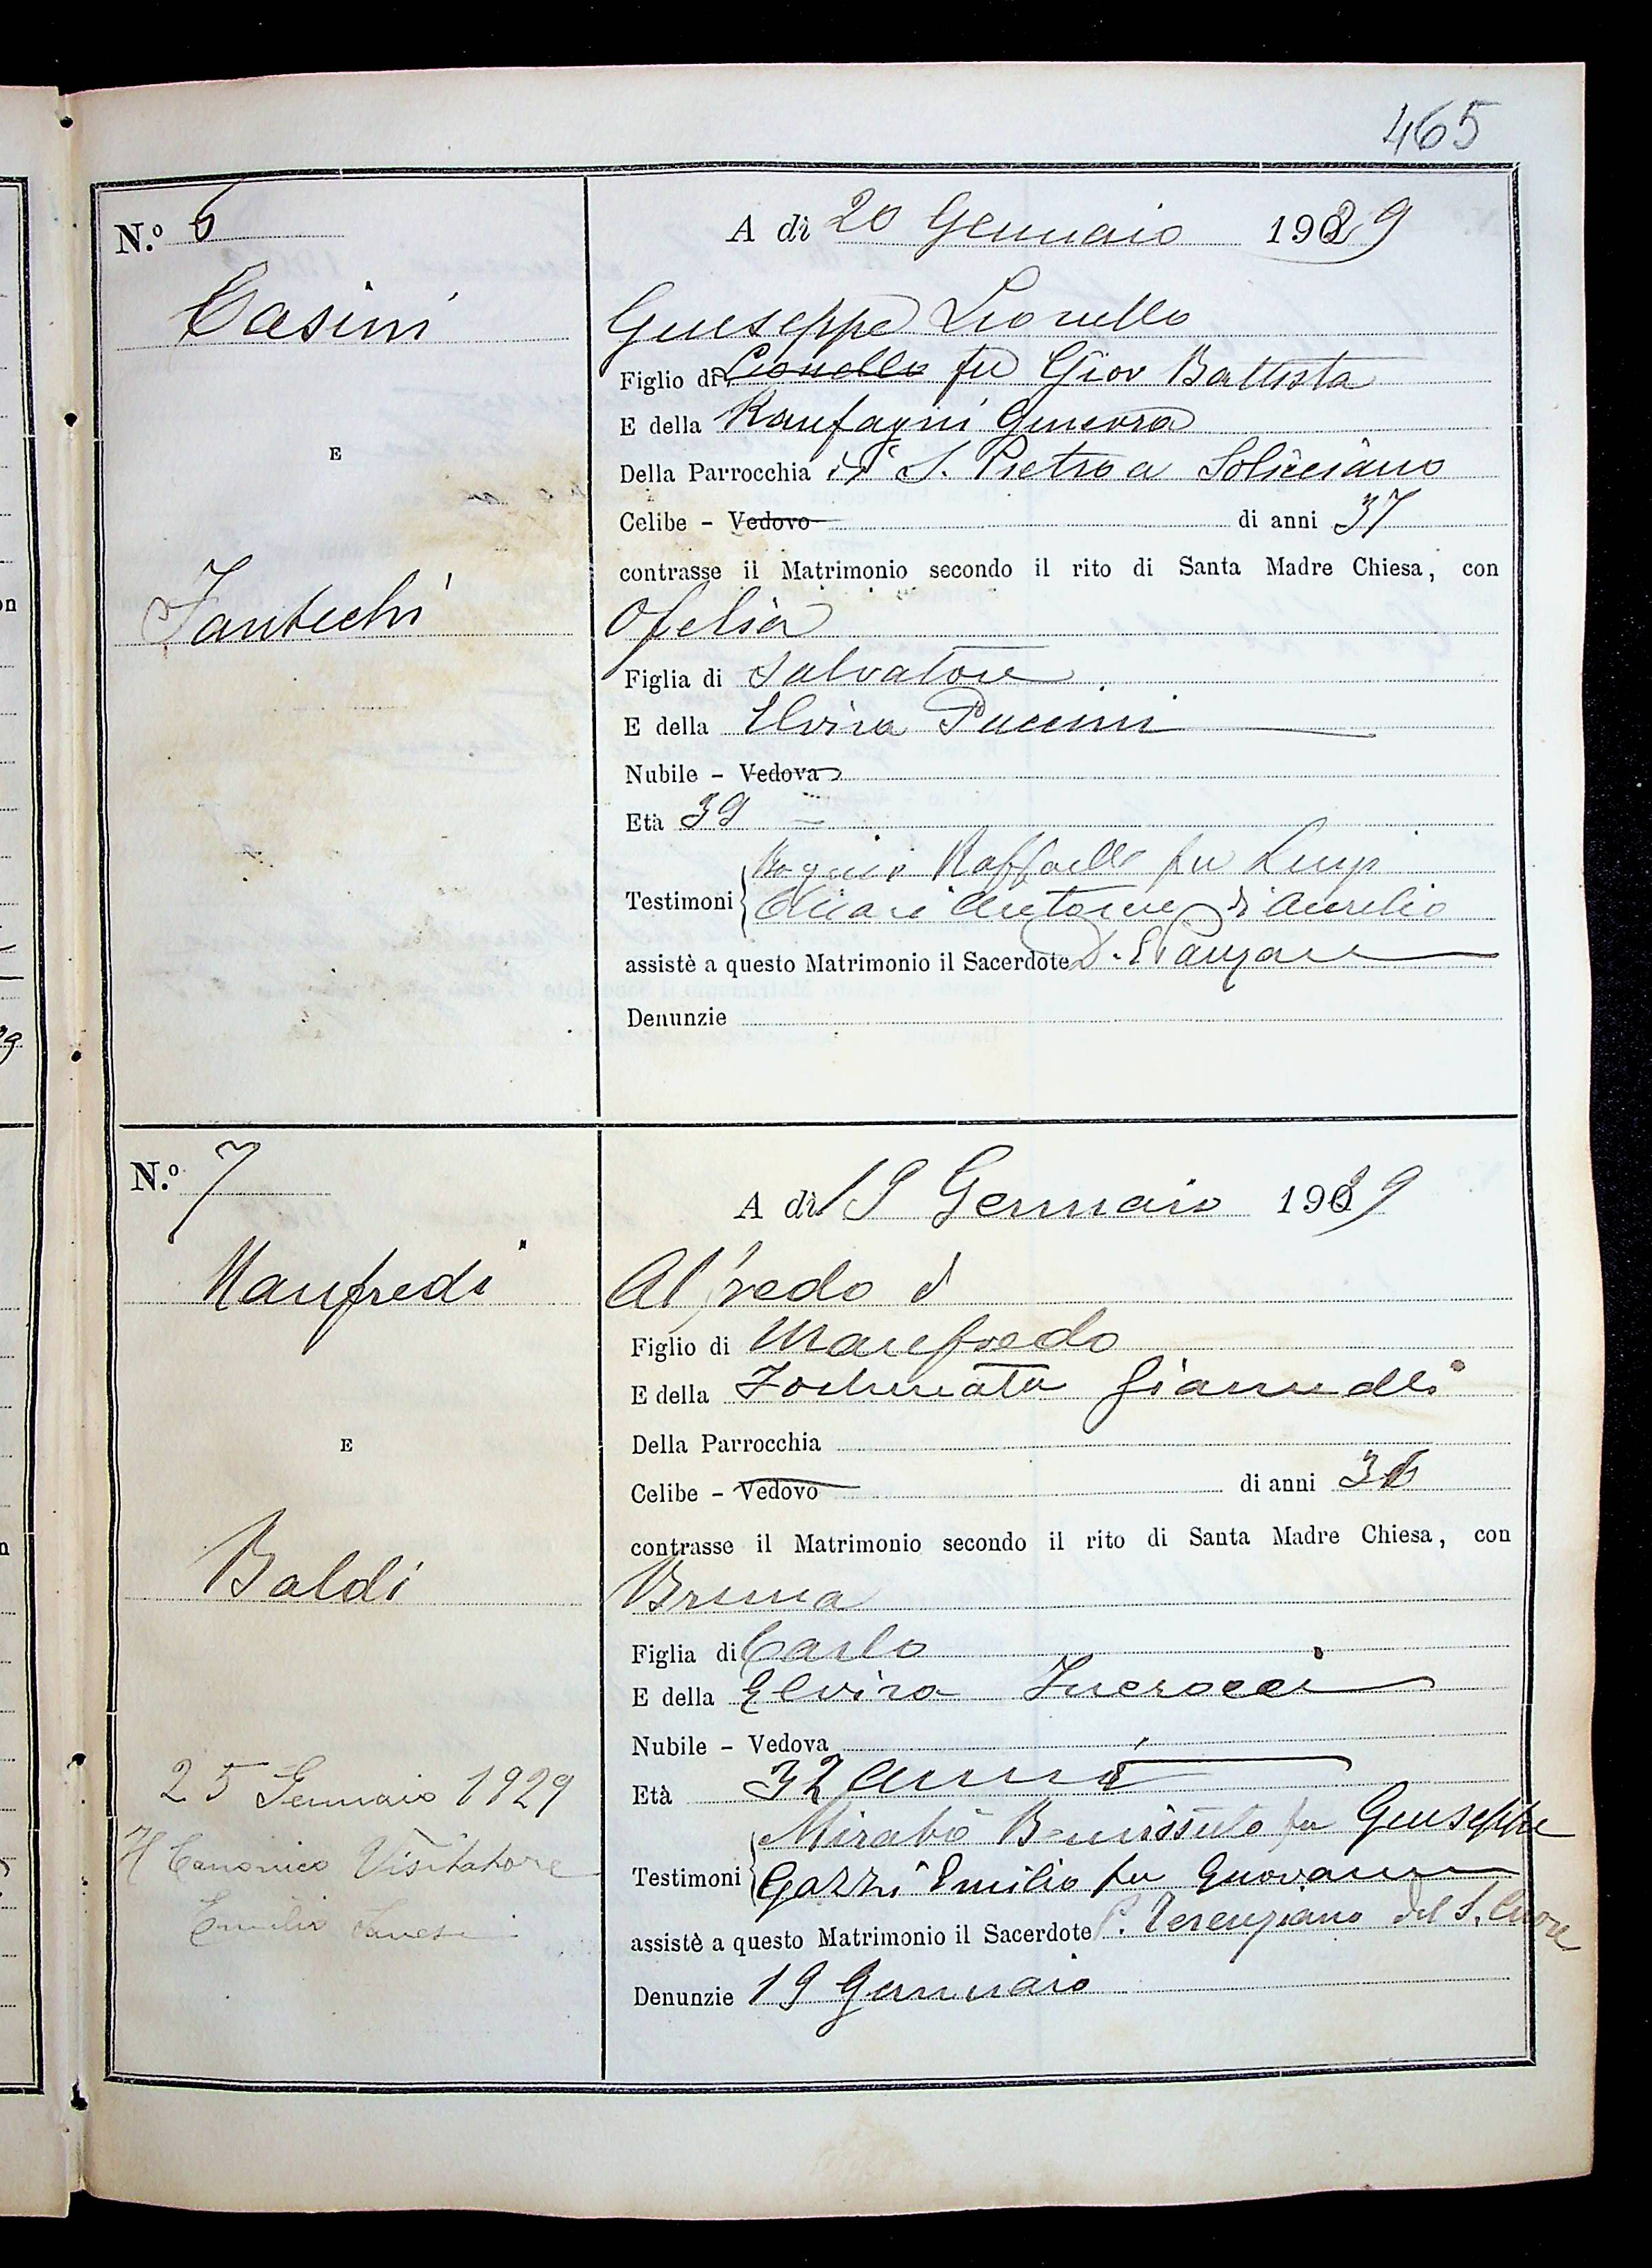 465
N.º 6
A dì 20 Gennaio 1929
Casini
Giuseppe Lionello
Figlio di Lionello fu Giov Battista
E della Ranfagni Ginevra
E
Della Parrocchia di S. Pietro a Solicciano
Celibe - Vedovo di anni 37
contrasse il Matrimonio secondo il rito di Santa Madre Chiesa, con
Fantechi
Ofelia
Figlia di Salvatore
E della Elvira Puccini
Nubile - Vedova
Età 39
Raffaello fu Luigi
Testimoni Chiari Antonio di Aurelio
assistè a questo Matrimonio il Sacerdote D. E.
Denunzie
N.º 7
A dì 19 Gennaio 1929
Manfredi
Alfredo
Figlio di Manfredo
E della Fortunata Giannelli
E
Della Parrocchia
Celibe - Vedovo di anni 36
contrasse il Matrimonio secondo il rito di Santa Madre Chiesa, con
Baldi
Bruna
Figlia di Carlo
E della Elvira Fucrocci
Nubile - Vedova
Età 32 anni
Fu Giuseppe
Testimoni Gazzi Emilio fu Giovanni
assistè a questo Matrimonio il Sacerdote P. Terenziano del S. Cuore
Denunzie 19 Gennaio
25 Gennaio 1929
Il Canonico Visitatore
Emilio